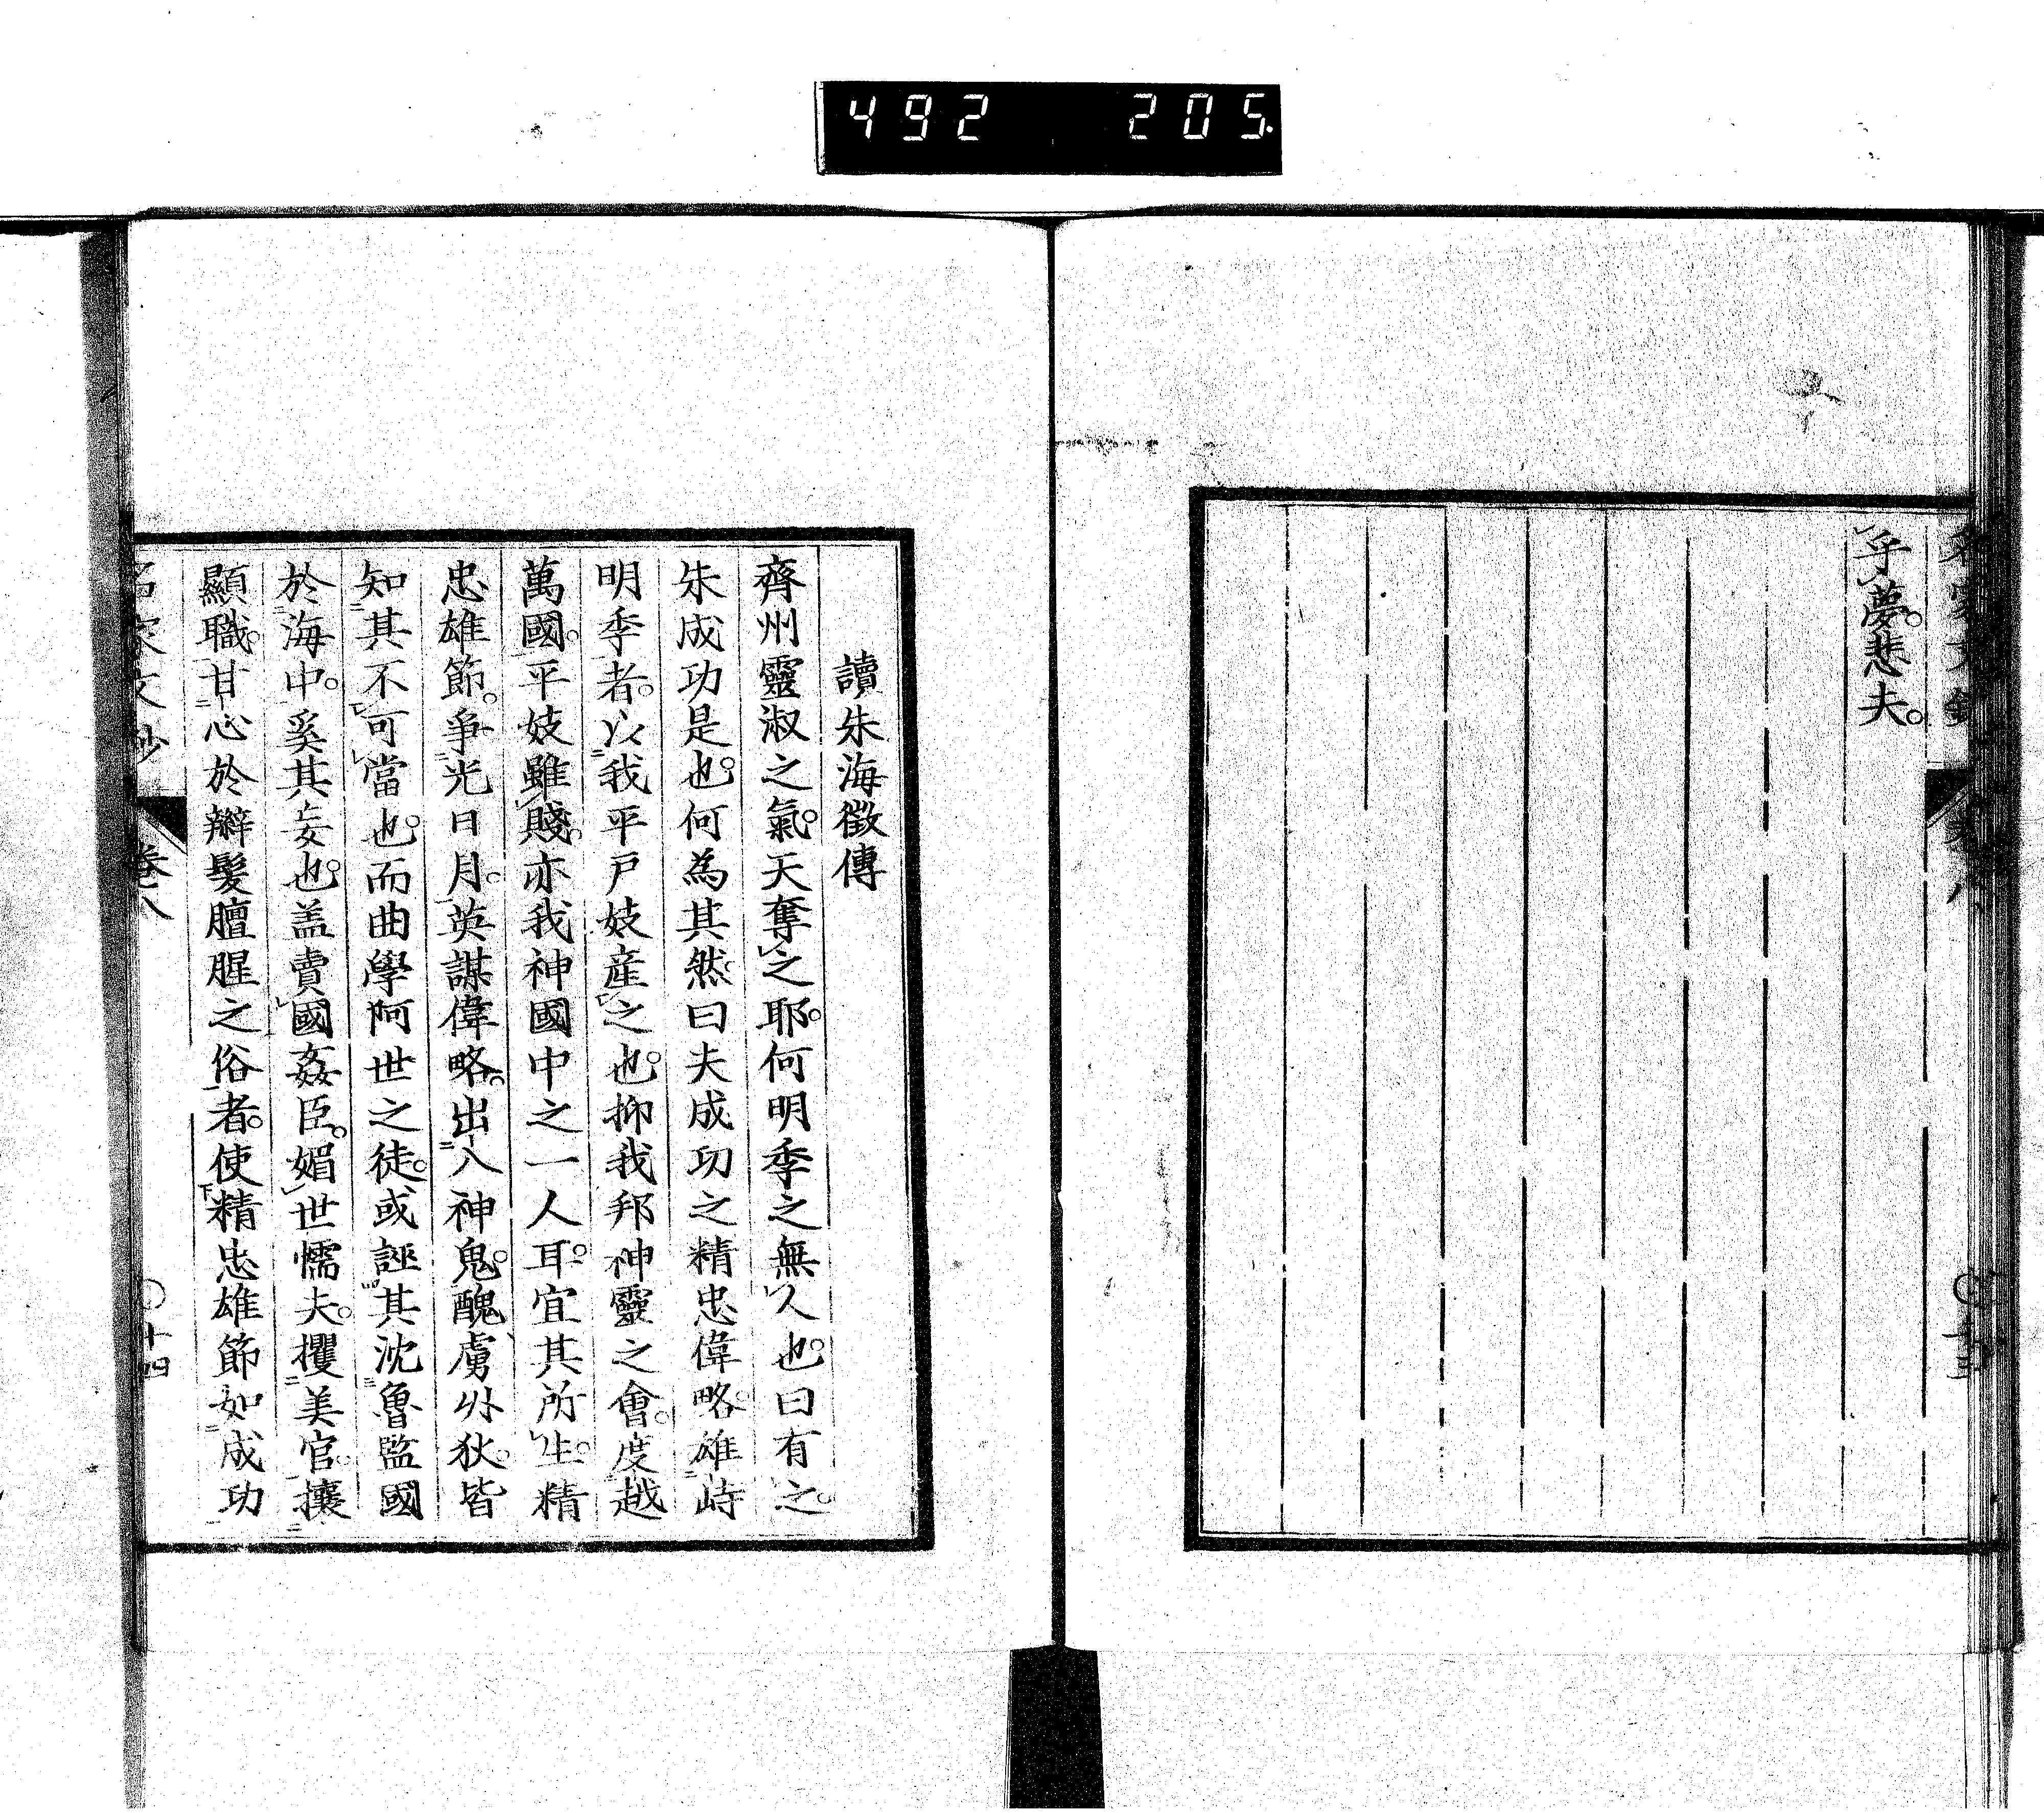 492 205
乎。夢。悲夫。
讀朱海徵傳
齊州靈淑之氣。天奪之耶。何明季之無人也。曰有之。
朱成功是也。何為其然。曰夫成功之精忠偉略。雄峙
明季者。以我平戸妓産之也。抑我邦神靈之會。度越
萬國。平妓雖賤。亦我神國中之一人耳。宜其所生。精
忠雄節。爭光日月。英謀偉略。出入神鬼。醜虜外狄。皆
知其不可當也。而曲學阿世之徒。或誣其沈魯監國
於海中。奚其妄也。盖賣國姦臣。媚世懦夫。攫美官。攘
顯職。甘心於辮髮膻腥之俗者。使精忠雄節如成功
名家文抄
卷八
十四